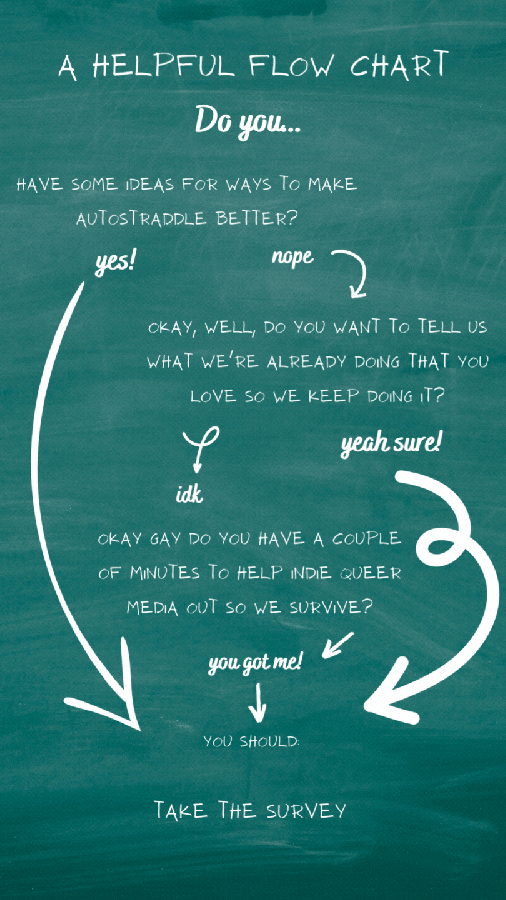 A HELPFUL FLOW CHART
Do you...
HAVE SOME IDEAS FOR WAYS TO MAKE
AUTOSTRADDLE BETTER?
yes!
nope
OKAY, WELL, DO YOU WANT TO TELL US
WHAT WE'RE ALREADY DOING THAT YOU
LOVE SO WE KEEP DOING IT?
yeah sure!
idk
OKAY GAY DO YOU HAVE A COUPLE
OF MINUTES TO HELP INDIE QUEER
MEDIA OUT SO WE SURVIVE?
you got me!
YOU SHOULD:
TAKE THE SURVEY